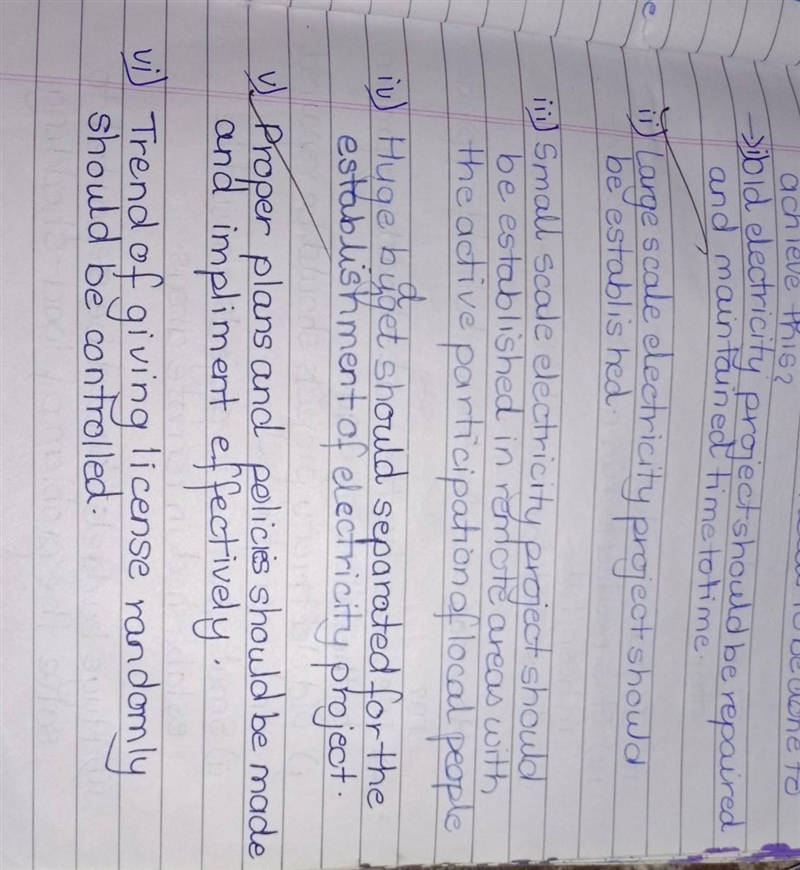 to be done to
achieve this?
→i) Old electricity project should be repaired
and maintained time to time.
ii) Large scale electricity project should
be established.
iii) Small scale electricity project should
be established in remote areas with
the active participation of local people
iv) Huge budget should separated for the
establishment of electricity project.
v) Proper plans and policies should be made
and impliment effectively.
vi) Trend of giving license randomly
should be controlled.